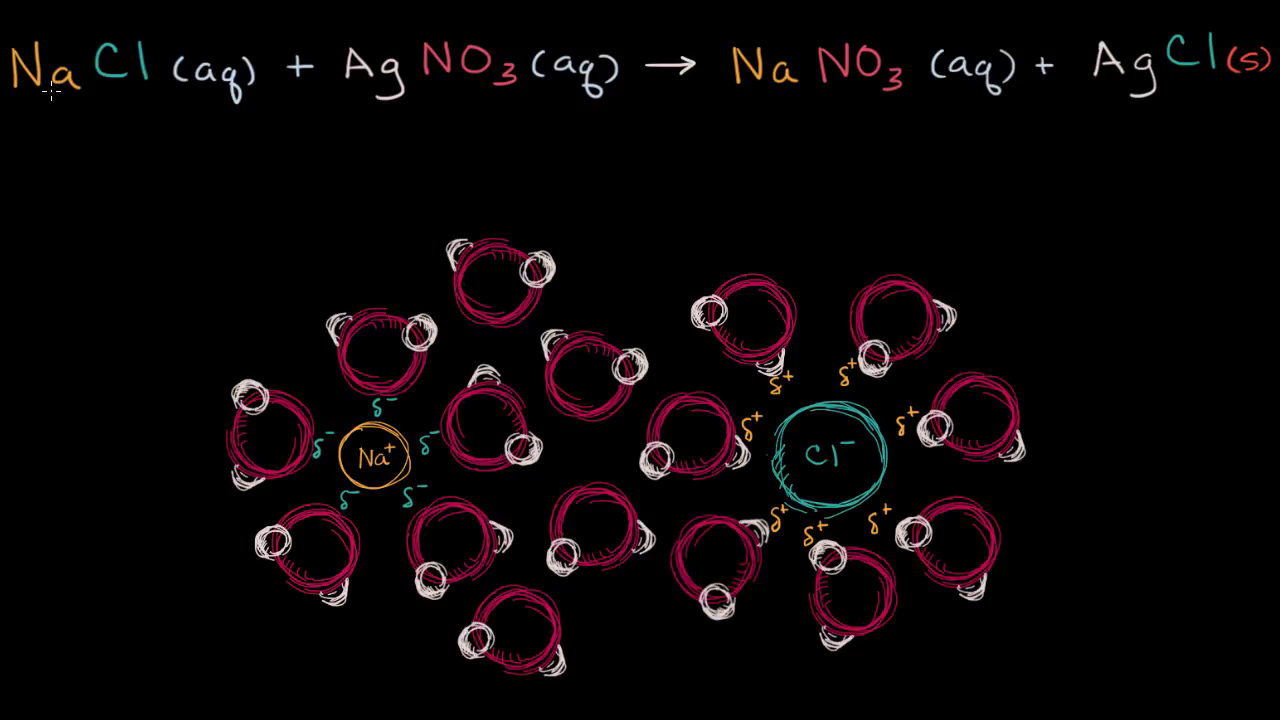 NaCl (aq) + AgNO₃ (aq) → NaNO₃ (aq) + AgCl(s)
δ⁺ δ⁺
δ⁻ δ⁺ δ⁺
δ⁻ Na⁺ δ⁻ Cl⁻
δ⁻ δ⁻
δ⁺ δ⁺ δ⁺